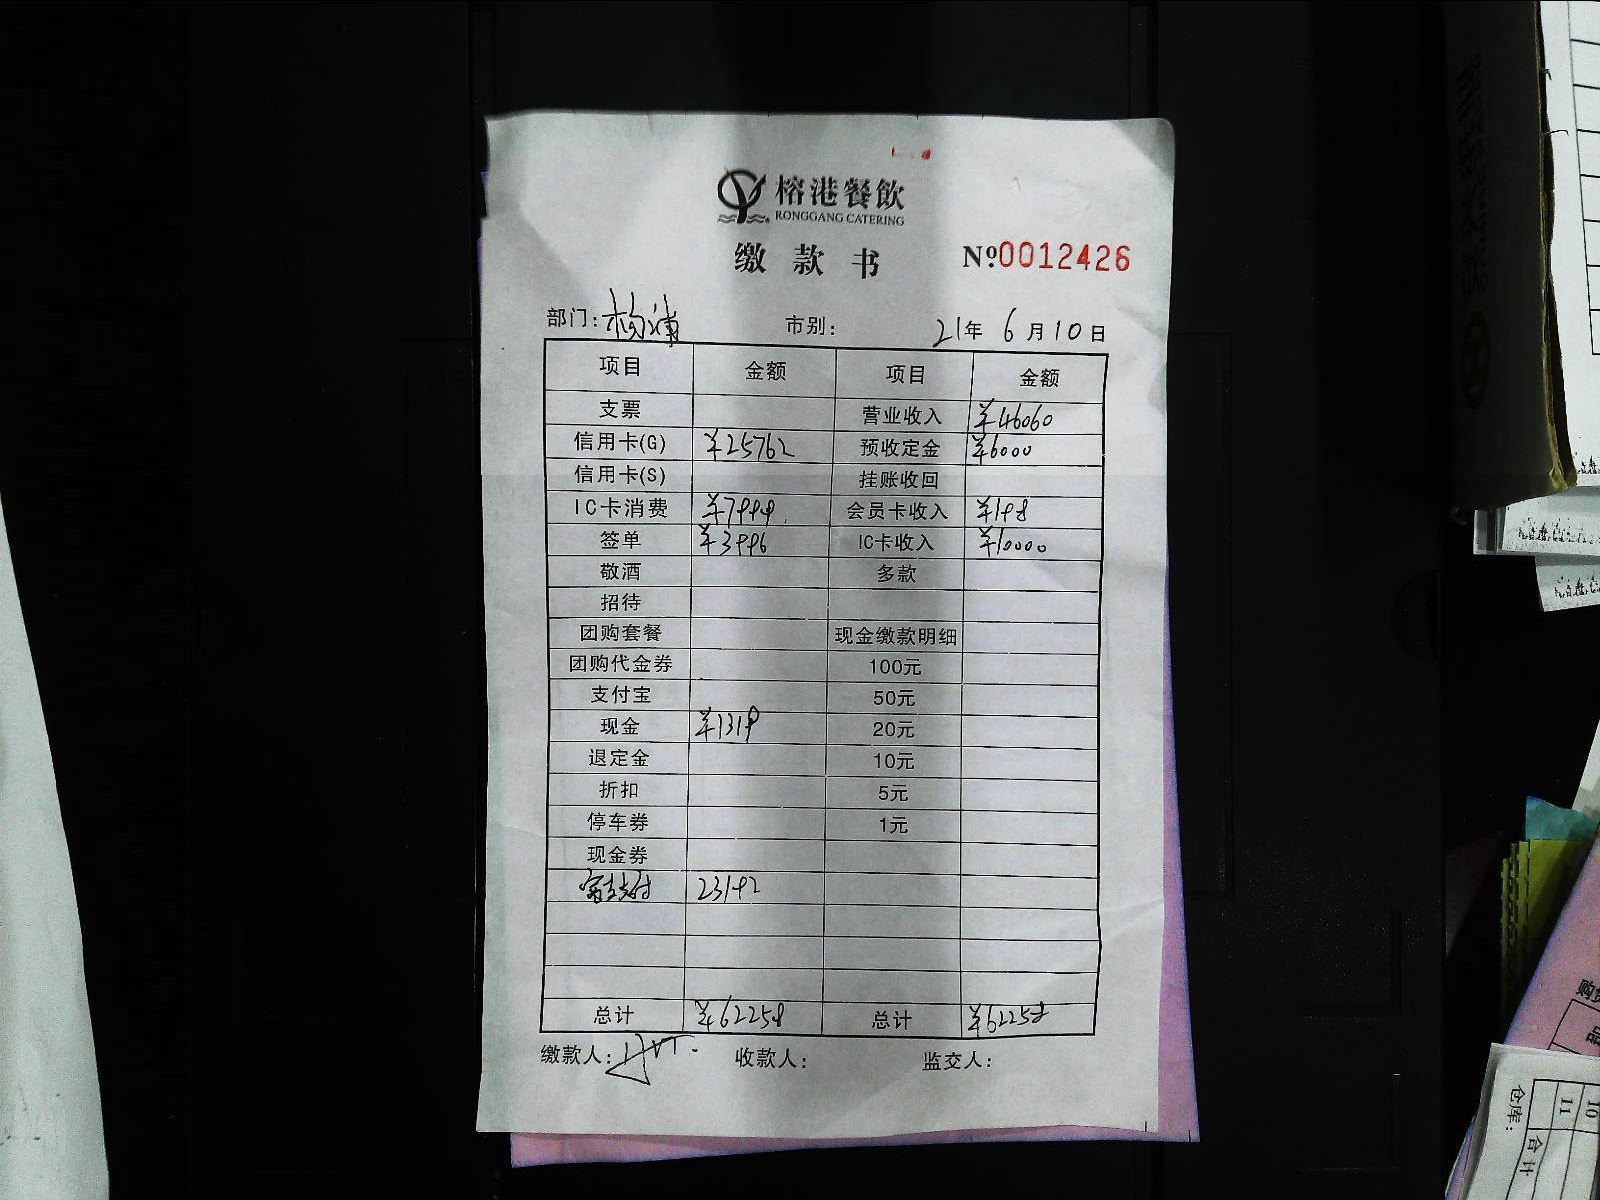 榕港餐飲
RONGGANG CATERING
缴款书 Nº0012426
部门:杨浦 市别: 21年 6月10日
项目 金额 项目 金额
支票 营业收入 ¥46060
信用卡(G) ¥25762 预收定金 ¥6000
信用卡(S) 挂账收回
IC卡消费 会员卡收入 ¥198
签单 ¥3996 IC卡收入 ¥10000
敬酒 多款
招待
团购套餐 现金缴款明细
团购代金券 100元
支付宝 50元
现金 ¥1318 20元
退定金 10元
折扣 5元
停车券 1元
现金券
23192
总计 ¥62258 总计 ¥62258
缴款人: 收款人: 监交人:
购
品
仓库:
10
11
合计